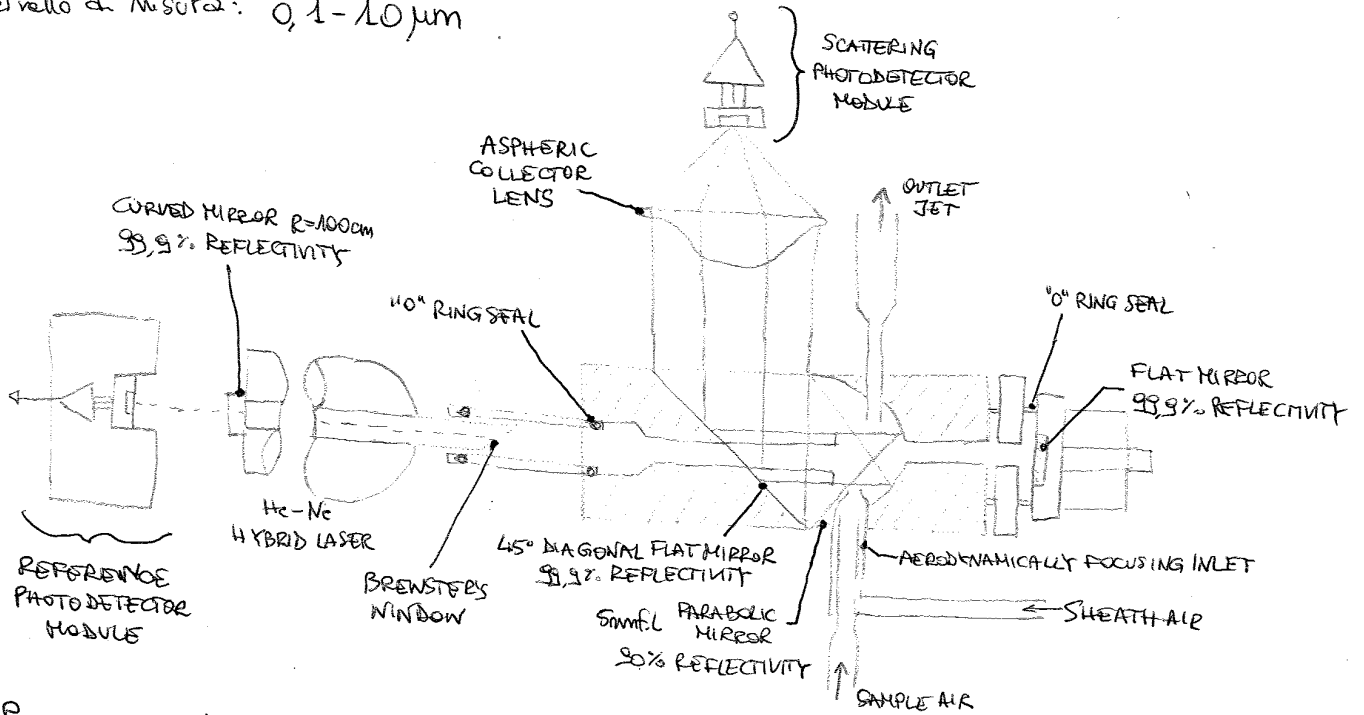 di Misura: 0,1-10 µm
SCATTERING
PHOTODETECTOR
MODULE
ASPHERIC
COLLECTOR
LENS
OUTLET
JET
CURVED MIRROR R=100cm
99,9% REFLECTIVITY
"O" RING SEAL
"O" RING SEAL
FLAT MIRROR
99,9% REFLECTIVITY
He-Ne
HYBRID LASER
REFERENCE
PHOTODETECTOR
MODULE
BREWSTER'S
WINDOW
45° DIAGONAL FLAT MIRROR
99,9% REFLECTIVITY
5mm f.l PARABOLIC
MIRROR
90% REFLECTIVITY
AERODYNAMICALLY FOCUSING INLET
SHEATH AIR
SAMPLE AIR